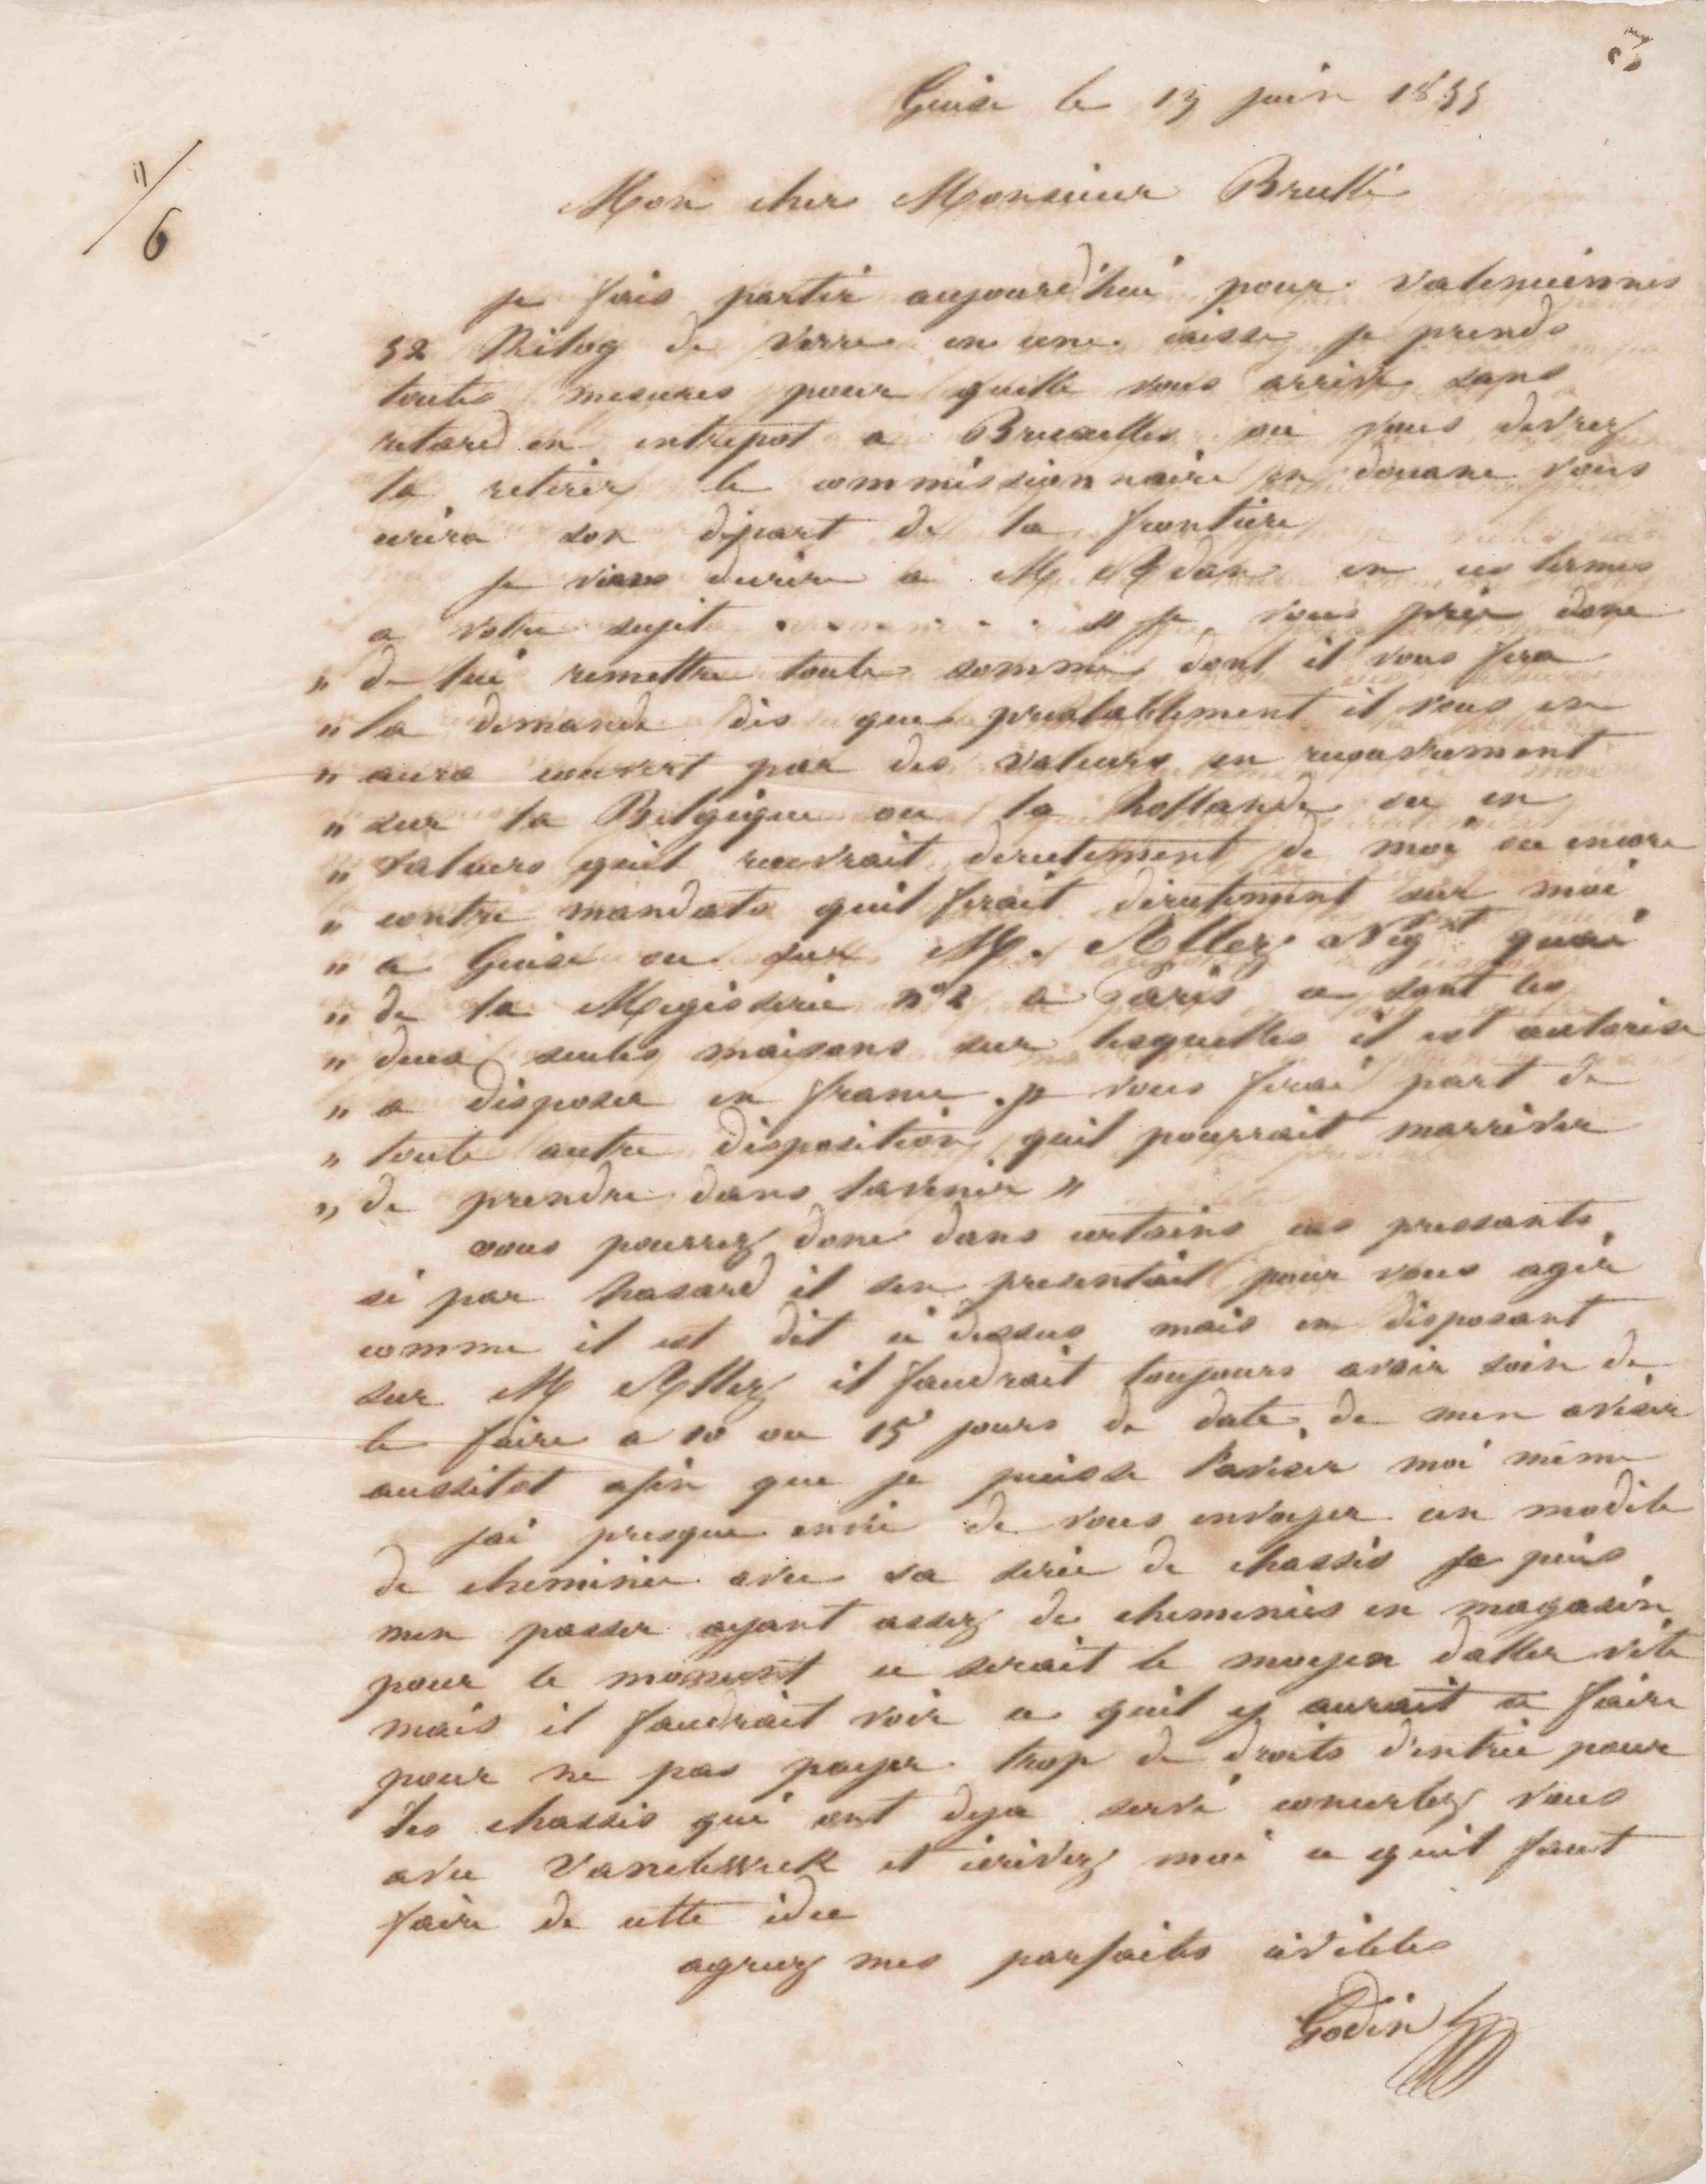 3
Guise le 15 juin 1855
11/6
Mon cher Monsieur Brullé
je fais partir aujourd'hui pour valenciennes
52 Kilog de verre en une caisse je prends
toutes mesures pour quelle vous arrive sans
retard en entrepot a Bruxelles ou vous devrez
la retirer le commissionnaire en douane vous
ecrira son départ de la frontiere
je viens decrire a M en ces termes
a votre sujet . . . . . . . . " je vous prie donc
" de lui remettre toute somme dont il vous fera
" la demande dès que prealablement il vous en
" aura couvert par des valeurs en recouvrement
" sur la Belgique ou la hollande ou en
" valeurs quil recevrait directement de moi ou encore
" contre mandats quil ferait directement sur moi
" a Guise ou sur M. Allez Negt quai
" de la Megisserie n° 2 a Paris ce sont les
" deux seules maisons sur lesquelles il est autorise
" a disposer en france. je vous ferai part de
" toute autre disposition quil pourrait marriver
" de prendre dans lavenir "
vous pourrez donc dans certains cas pressants
si par hasard il sen presentait pour vous agir
comme il est dit ci dessus mais en disposant
sur M Allez il faudrait toujours avoir soin de
le faire a 10 ou 15 jours de date de men aviser
aussitot afin que je puisse l'aviser moi même
jai presque envie de vous envoyer un modèle
de cheminée avec sa serie de chassis je puis
men passer ayant assez de cheminées en magasin
pour le moment ce serait le moyen daller vite
mais il faudrait voir ce quil y aurait a faire
pour ne pas payer trop de droits d'entrée pour
des chassis qui ont deja servi concertez vous
avec et écrivez moi ce quil faut
faire de cette idee
agreez mes parfaites civilités
Godin